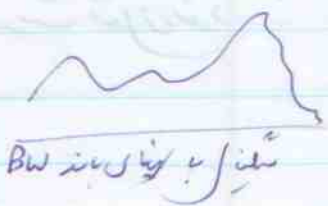 سیگنال با پهنای باند BW